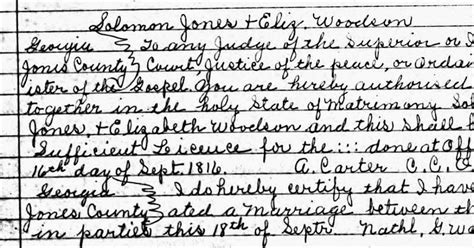 Solomon Jones + Eliz. Woodson
Georgia } To any Judge of the Superior or
Jones County } Court Justice of the peace, or Ordai
ister of the Gospel You are hereby authorised
together in the holy State of Matrimony Sol
Jones, + Elizabeth Woodson and this shall
Sufficient Licence for the ::: done at Off
16th day of Sept. 1816. A. Carter C. C. O
Georgia } I do hereby certify that I have
Jones County } ated a Marriage between th
in parties this 18th of Septr. Nathl, G. W